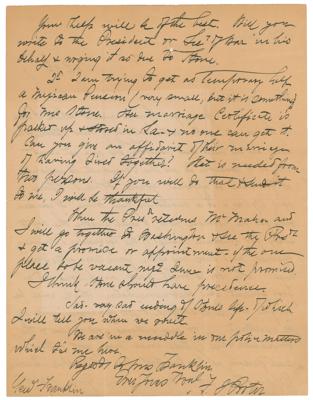 Your help will be of the best. Will you
write to the President or Sec'y of War in his
behalf & urging it so due to Stone.
I am trying to get as temporary help
a Mexican Pension (very small, but it is something
for Mrs Stone. Her marriage Certificate is
packed up & stored in & no one can get it.
Can you give an affidavit of their marriage
& having lived together? That is needed from
two persons. If you will do that & send it
to me, I will be thankful.
When the Pres't returns Mr Mahon and
I will go together to Washington & see the Pres't
& get a promise or appointment - if the one
place to be vacant next June is not promised.
I think Stone should have precedence.
very sad ending of Stones life. of which
I will tell you when we meet.
We are in a muddle in our police matters
which keeps me here.
Regards to Mrs Franklin,
Ever Yours
Porter
Gen'l Franklin